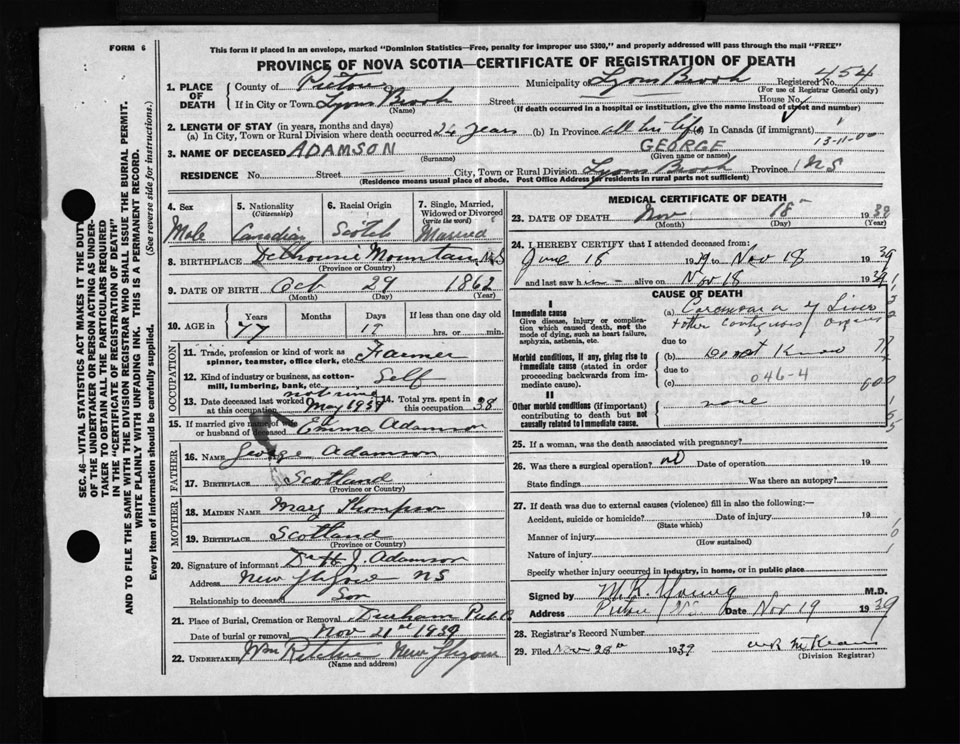 FORM 6
This form if placed in an envelope, marked "Dominion Statistics—Free, penalty for improper use $300," and properly addressed will pass through the mail "FREE"
PROVINCE OF NOVA SCOTIA—CERTIFICATE OF REGISTRATION OF DEATH
SEC. 46—VITAL STATISTICS ACT MAKES IT THE DUTY
OF THE UNDERTAKER OR PERSON ACTING AS UNDER-
TAKER TO OBTAIN ALL THE PARTICULARS REQUIRED
IN THE "CERTIFICATE OF REGISTRATION OF DEATH"
AND TO FILE THE SAME WITH THE DIVISION REGISTRAR WHO SHALL ISSUE THE BURIAL PERMIT.
WRITE PLAINLY WITH UNFADING INK. THIS IS A PERMANENT RECORD.
Every item of information should be carefully supplied. (See reverse side for instructions.)
1. PLACE OF DEATH
County of Pictou Municipality of Lyons Brook Registered No. 454
(For use of Registrar General only)
If in City or Town Lyons Brook Street House No.
(Name) (If death occurred in a hospital or institution, give the name instead of street and number)
2. LENGTH OF STAY (in years, months and days)
(a) In City, Town or Rural Division where death occurred 24 years (b) In Province all his life (c) In Canada (if immigrant)
13-11-00
3. NAME OF DECEASED ADAMSON GEORGE
(Surname) (Given name or names)
RESIDENCE No. Street City, Town or Rural Division Lyons Brook Province NS
(Residence means usual place of abode. Post Office Address for residents in rural parts not sufficient)
4. Sex 5. Nationality (Citizenship) 6. Racial Origin 7. Single, Married, Widowed or Divorced (write the word)
Male Canadian Scotch Married
8. BIRTHPLACE Dalhousie Mountain N.S
(Province or Country)
9. DATE OF BIRTH Oct 29 1862
(Month) (Day) (Year)
10. AGE in Years Months Days If less than one day old
77 hrs. or min.
OCCUPATION
11. Trade, profession or kind of work as spinner, teamster, office clerk, etc. Farmer
12. Kind of industry or business, as cotton-mill, lumbering, bank, etc. Self
13. Date deceased last worked at this occupation May 1939 14. Total yrs. spent in this occupation 38
15. If married give name of wife or husband of deceased Emma Adamson
FATHER
16. NAME George Adamson
17. BIRTHPLACE Scotland
(Province or Country)
MOTHER
18. MAIDEN NAME Mary Thompson
19. BIRTHPLACE Scotland
(Province or Country)
20. Signature of informant J. Adamson
Address New Glasgow NS
Relationship to deceased Son
21. Place of Burial, Cremation or Removal Durham
Date of burial or removal Nov 21st 1939
22. UNDERTAKER Wm Ritchie New Glasgow
(Name and address)
MEDICAL CERTIFICATE OF DEATH
23. DATE OF DEATH Nov 18 1939
(Month) (Day) (Year)
24. I HEREBY CERTIFY that I attended deceased from:
June 18 19 to Nov 18 1939
and last saw h alive on Nov 18 1939
CAUSE OF DEATH
I
Immediate cause
Give disease, injury or complication which caused death, not the mode of dying, such as heart failure, asphyxia, asthenia, etc.
(a) Carcinoma of Liver
& other contiguous organs
due to
Morbid conditions, if any, giving rise to immediate cause (stated in order proceeding backwards from immediate cause).
(b) Do not Know
due to
(c) 046-4
II
Other morbid conditions (if important) contributing to death but not causally related to immediate cause.
none
25. If a woman, was the death associated with pregnancy?
26. Was there a surgical operation? no Date of operation 19
State findings Was there an autopsy?
27. If death was due to external causes (violence) fill in also the following:—
Accident, suicide or homicide? Date of injury 19
(State which)
Manner of injury
(How sustained)
Nature of injury
Specify whether injury occurred in industry, in home, or in public place
Signed by M.R. Young M.D.
Address Pictou Date Nov 19 1939
28. Registrar's Record Number
29. Filed Nov 1939
(Division Registrar)